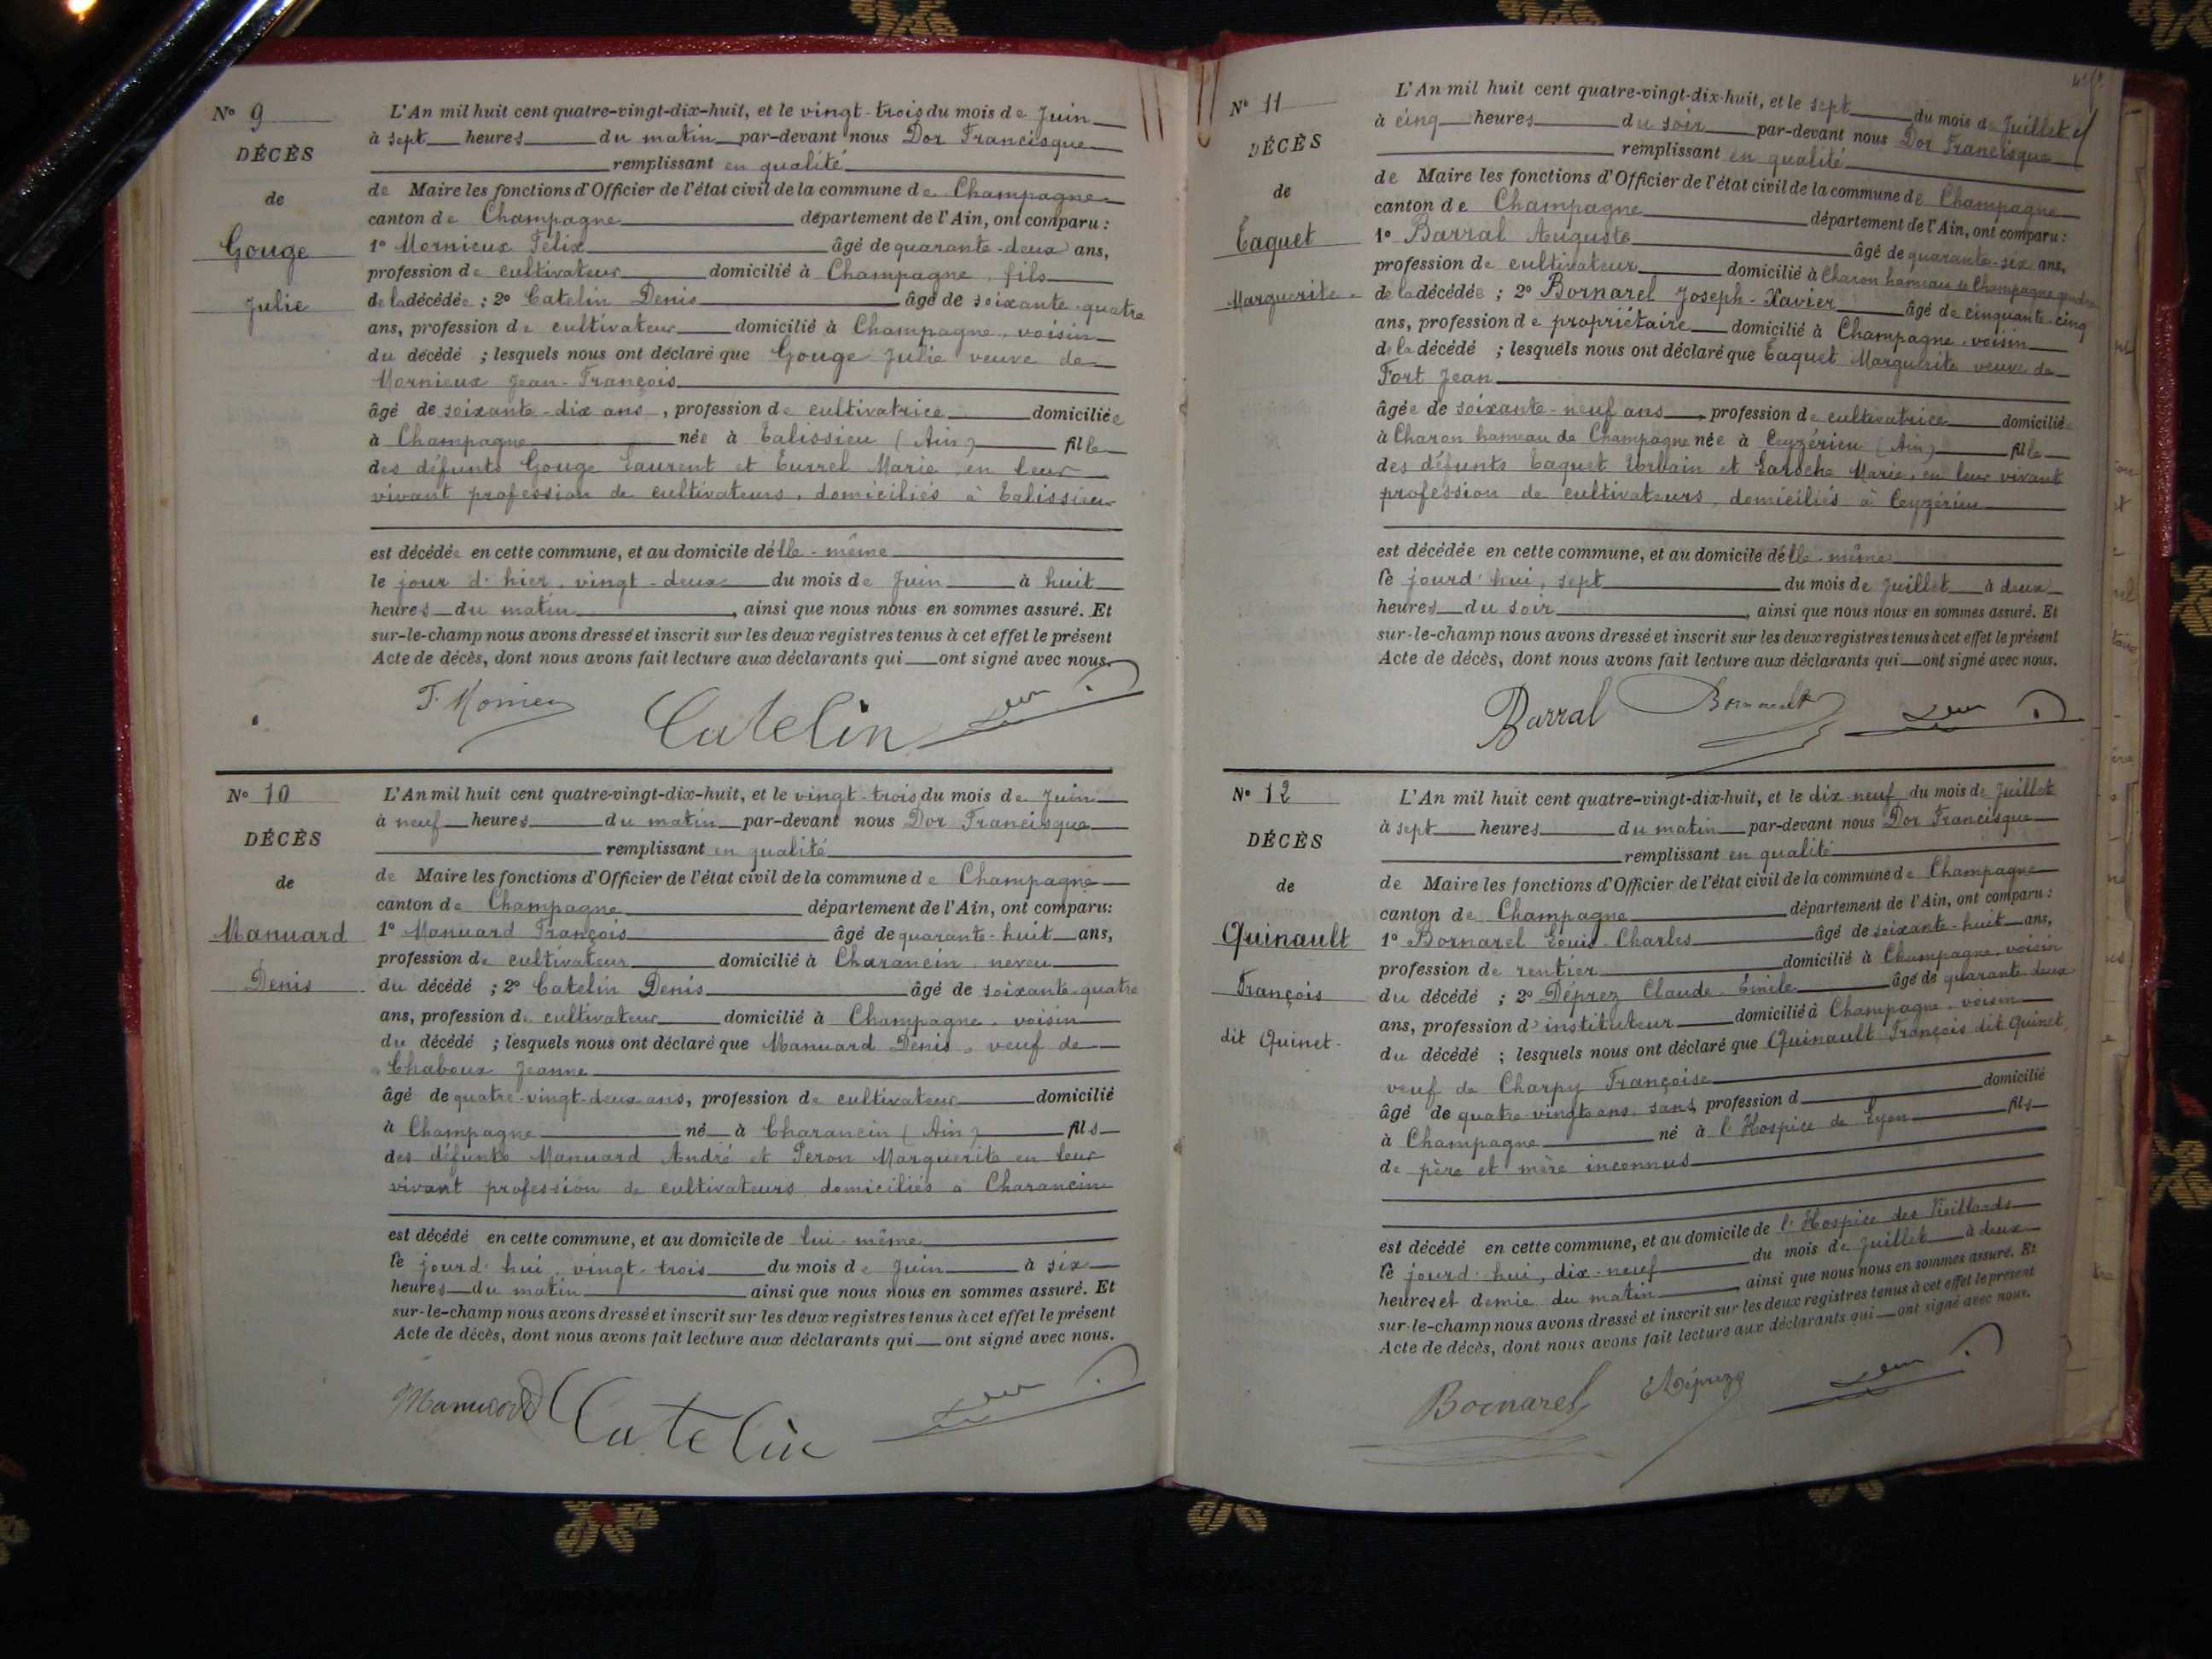 N° 9
DÉCÈS
de
Gouge
Julie
L'An mil huit cent quatre-vingt-dix-huit, et le vingt-trois du mois de Juin
à sept heures du matin par-devant nous Dor Francisque
remplissant en qualité
de Maire les fonctions d'Officier de l'état civil de la commune de Champagne
canton de Champagne département de l'Ain, ont comparu :
1° Mornieux Félix âgé de quarante-deux ans,
profession de cultivateur domicilié à Champagne, fils
de la décédée ; 2° Catelin Denis âgé de soixante-quatre
ans, profession de cultivateur domicilié à Champagne, voisin
du décédé ; lesquels nous ont déclaré que Gouge Julie veuve de
Mornieux Jean-François
âgé de soixante-dix ans, profession de cultivatrice domiciliée
à Champagne née à Talissieu (Ain) fille
des défunts Gouge Laurent et Eurrel Marie, en leur
vivant profession de cultivateurs, domiciliés à Talissieu
est décédée en cette commune, et au domicile d'elle-même
le jour d'hier, vingt-deux du mois de Juin à huit
heures du matin, ainsi que nous nous en sommes assuré. Et
sur-le-champ nous avons dressé et inscrit sur les deux registres tenus à cet effet le présent
Acte de décès, dont nous avons fait lecture aux déclarants qui ont signé avec nous.
Catelin
N° 10
DÉCÈS
de
Manuard
Denis
L'An mil huit cent quatre-vingt-dix-huit, et le vingt-trois du mois de Juin
à neuf heures du matin par-devant nous Dor Francisque
remplissant en qualité
de Maire les fonctions d'Officier de l'état civil de la commune de Champagne
canton de Champagne département de l'Ain, ont comparu:
1° Manuard François âgé de quarante-huit ans,
profession de cultivateur domicilié à Charancin, neveu
du décédé ; 2° Catelin Denis âgé de soixante-quatre
ans, profession de cultivateur domicilié à Champagne, voisin
du décédé ; lesquels nous ont déclaré que Manuard Denis, veuf de
Chaboux Jeanne
âgé de quatre-vingt-deux ans, profession de cultivateur domicilié
à Champagne né à Charancin (Ain) fils
des défunts Manuard André et Peron Marguerite en leur
vivant profession de cultivateurs domiciliés à Charancin
est décédé en cette commune, et au domicile de lui-même
le jourd'hui, vingt-trois du mois de Juin à six
heures du matin ainsi que nous nous en sommes assuré. Et
sur-le-champ nous avons dressé et inscrit sur les deux registres tenus à cet effet le présent
Acte de décès, dont nous avons fait lecture aux déclarants qui ont signé avec nous.
Manuard Catelin
N° 11
DÉCÈS
de
Taquet
Marguerite
L'An mil huit cent quatre-vingt-dix-huit, et le sept du mois de Juillet
à cinq heures du soir par-devant nous Dor Francisque
remplissant en qualité
de Maire les fonctions d'Officier de l'état civil de la commune de Champagne
canton de Champagne département de l'Ain, ont comparu :
1° Barral Auguste âgé de quarante-six ans,
profession de cultivateur domicilié à Charon hameau de Champagne gendre
de la décédée ; 2° Bornarel Joseph-Xavier âgé de cinquante-cinq
ans, profession de propriétaire domicilié à Champagne, voisin
de la décédé ; lesquels nous ont déclaré que Taquet Marguerite veuve de
Fort Jean
âgée de soixante-neuf ans, profession de cultivatrice domiciliée
à Charon hameau de Champagne née à Ceyzérieu (Ain) fille
des défunts Taquet Urbain et Laroche Marie, en leur vivant
profession de cultivateurs, domiciliés à Ceyzérieu
est décédée en cette commune, et au domicile d'elle-même
le jourd'hui, sept du mois de Juillet à deux
heures du soir, ainsi que nous nous en sommes assuré. Et
sur-le-champ nous avons dressé et inscrit sur les deux registres tenus à cet effet le présent
Acte de décès, dont nous avons fait lecture aux déclarants qui ont signé avec nous.
Barral
N° 12
DÉCÈS
de
Quinault
François
dit Quinet
L'An mil huit cent quatre-vingt-dix-huit, et le dix-neuf du mois de Juillet
à sept heures du matin par-devant nous Dor Francisque
remplissant en qualité
de Maire les fonctions d'Officier de l'état civil de la commune de Champagne
canton de Champagne département de l'Ain, ont comparu :
1° Bornarel Louis-Charles âgé de soixante-huit ans,
profession de rentier domicilié à Champagne, voisin
du décédé ; 2° Déprez Claude-Émile âgé de quarante-deux
ans, profession d'instituteur domicilié à Champagne, voisin
du décédé ; lesquels nous ont déclaré que Quinault François dit Quinet
veuf de Charpy Françoise
âgé de quatre-vingts ans, sans profession d domicilié
à Champagne né à l'Hospice de Lyon fils
de père et mère inconnus
est décédé en cette commune, et au domicile de l'Hospice des Vieillards
le jourd'hui, dix-neuf du mois de Juillet à deux
heures et demie du matin, ainsi que nous nous en sommes assuré. Et
sur-le-champ nous avons dressé et inscrit sur les deux registres tenus à cet effet le présent
Acte de décès, dont nous avons fait lecture aux déclarants qui ont signé avec nous.
Bornarel Déprez